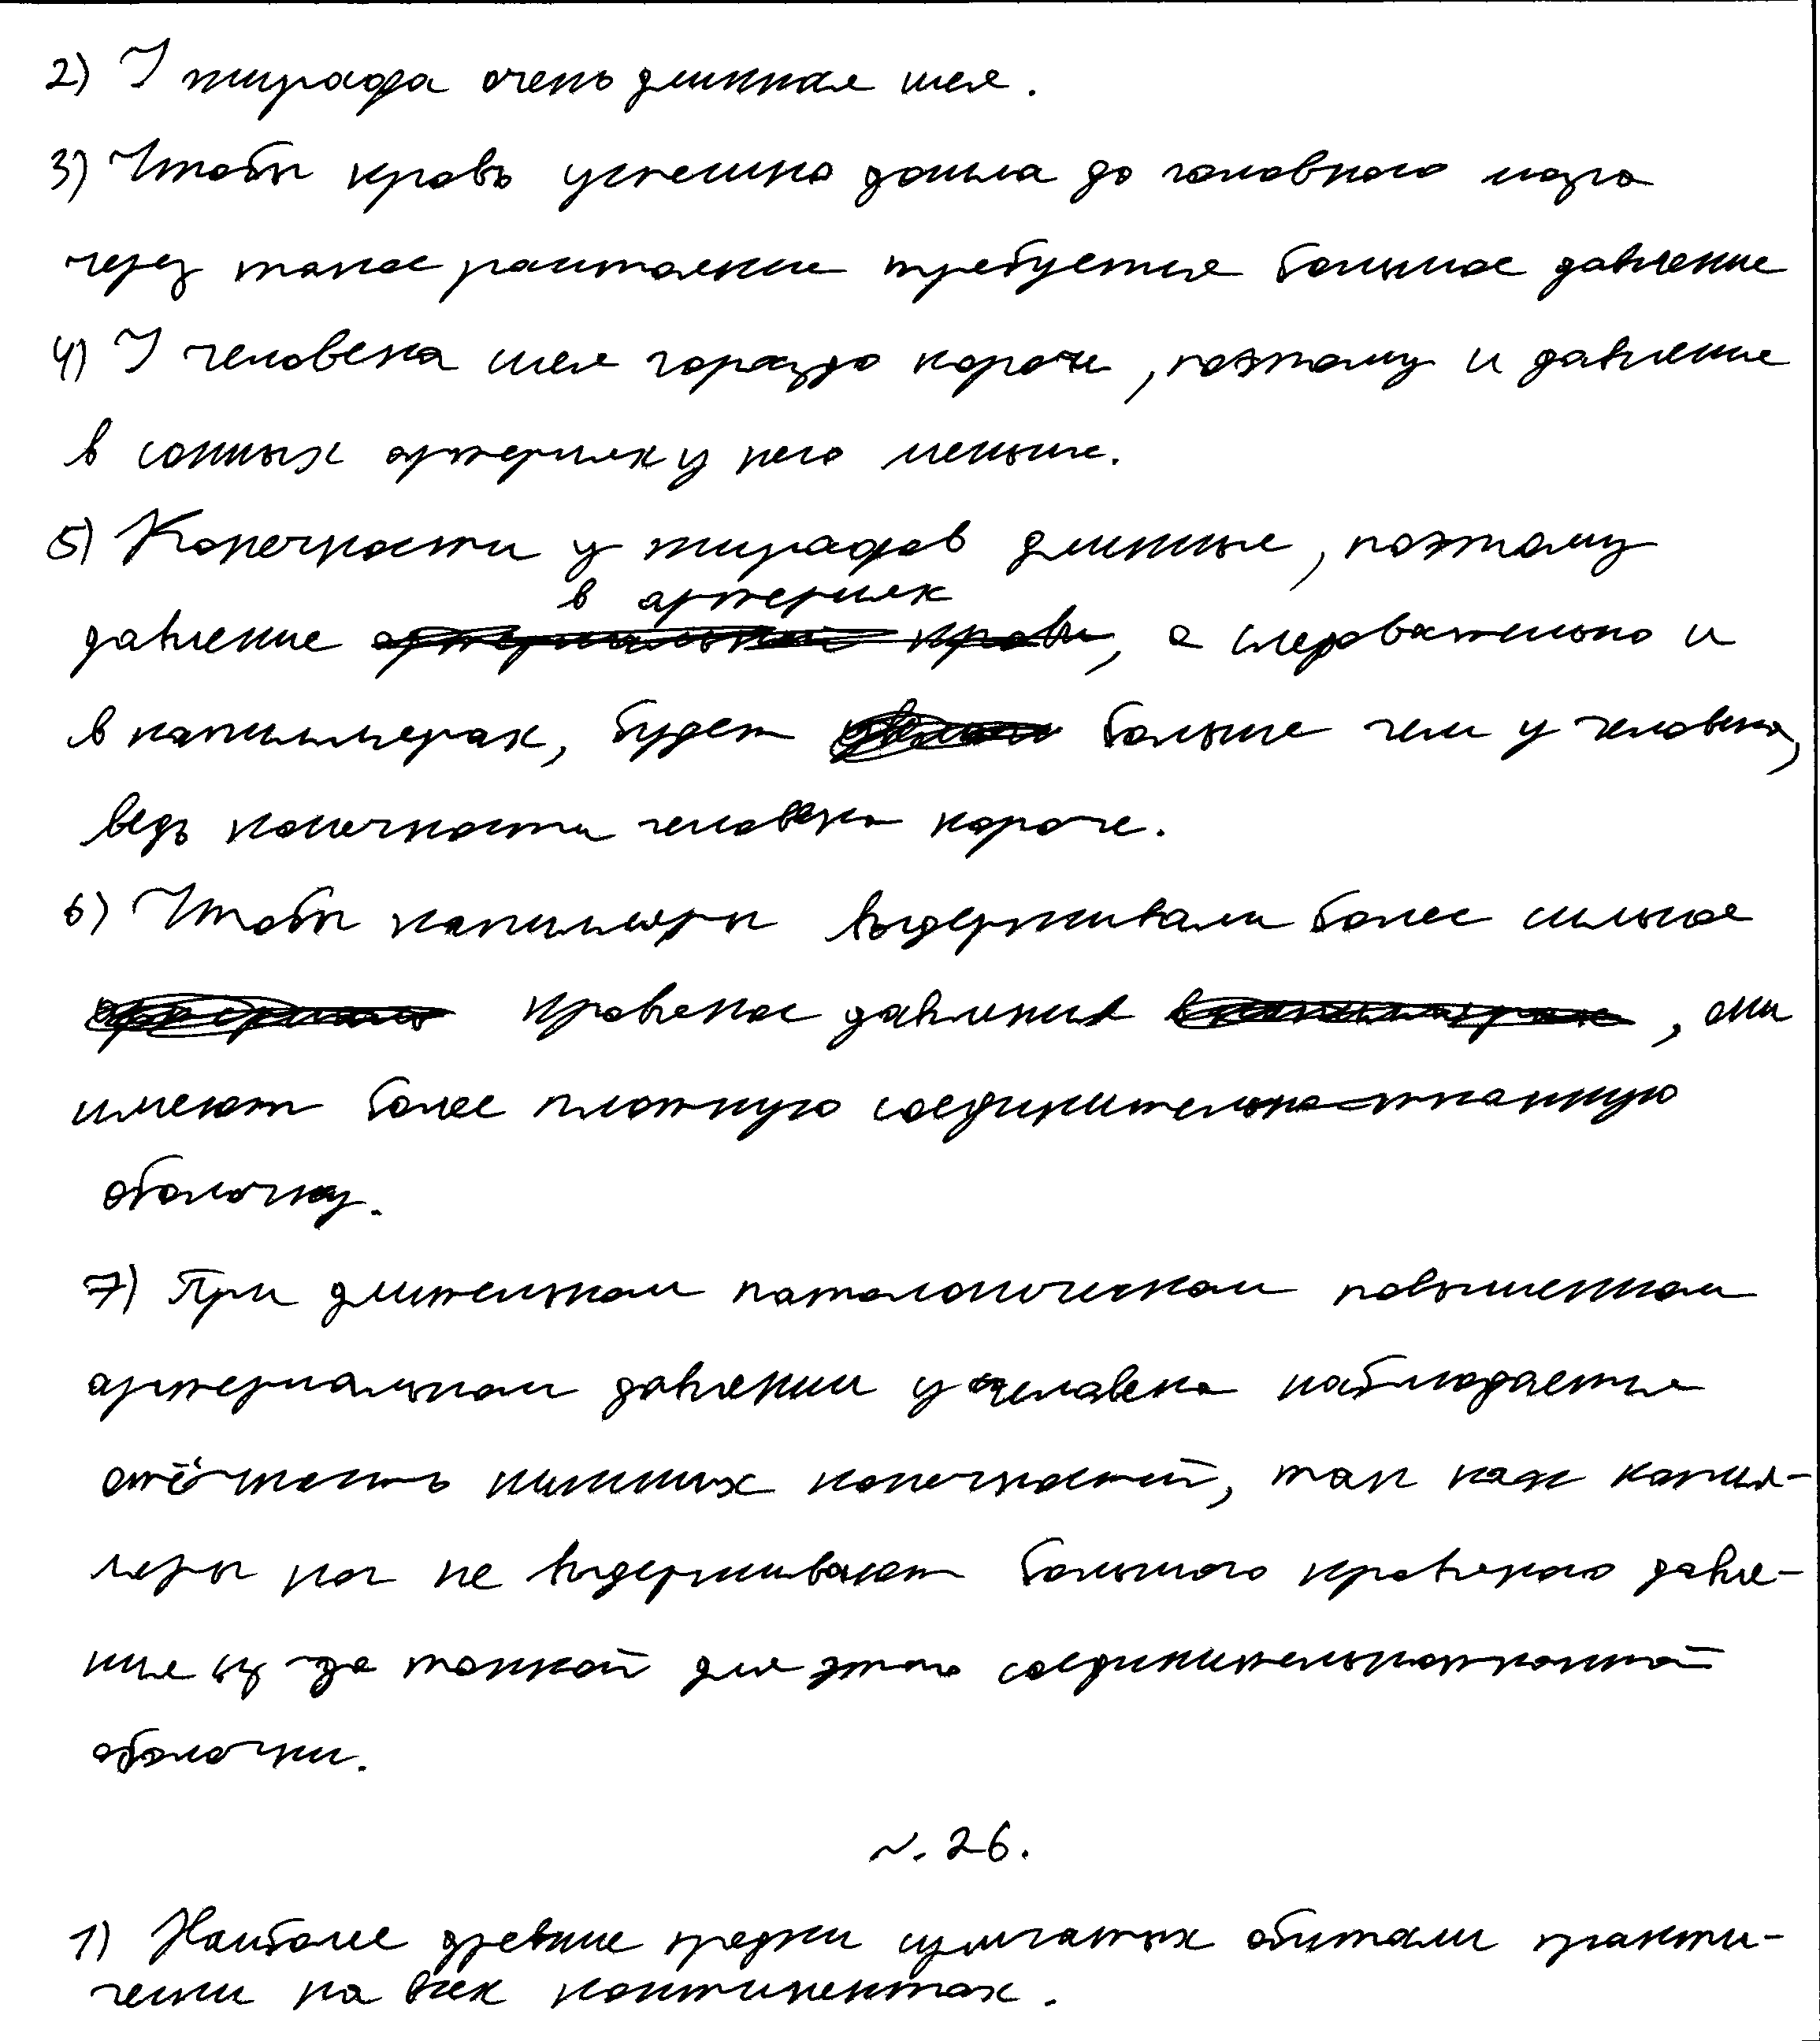 2) У жирафа очень длинная шея.
3) Чтобы кровь успешно дошла до головного мозга
через такое расстояние требуется большое давление
4) У человека шея гораздо короче, поэтому и давление
в сонных артериях у него меньше.
5) Конечности у жирафов длинные, поэтому
в артериях
давление артериальной крови, а следовательно и
в капиллярах, будет больше чем у человека,
ведь конечности человека короче.
6) Чтобы капилляры выдерживали более сильное
кровяное давления , они
имеют более плотную соединительно-тканную
оболочку.
7) При длительном патологическом повышенном
артериальном давлении у человека наблюдается
отёчность нижних конечностей, так как капил-
ляры ног не выдерживают большого кровяного давле-
ние из-за тонкой для этого соединительнотканной
оболочки.
№. 26.
1) Наиболее древние предки сумчатых обитали практи-
чески на всех континентах.